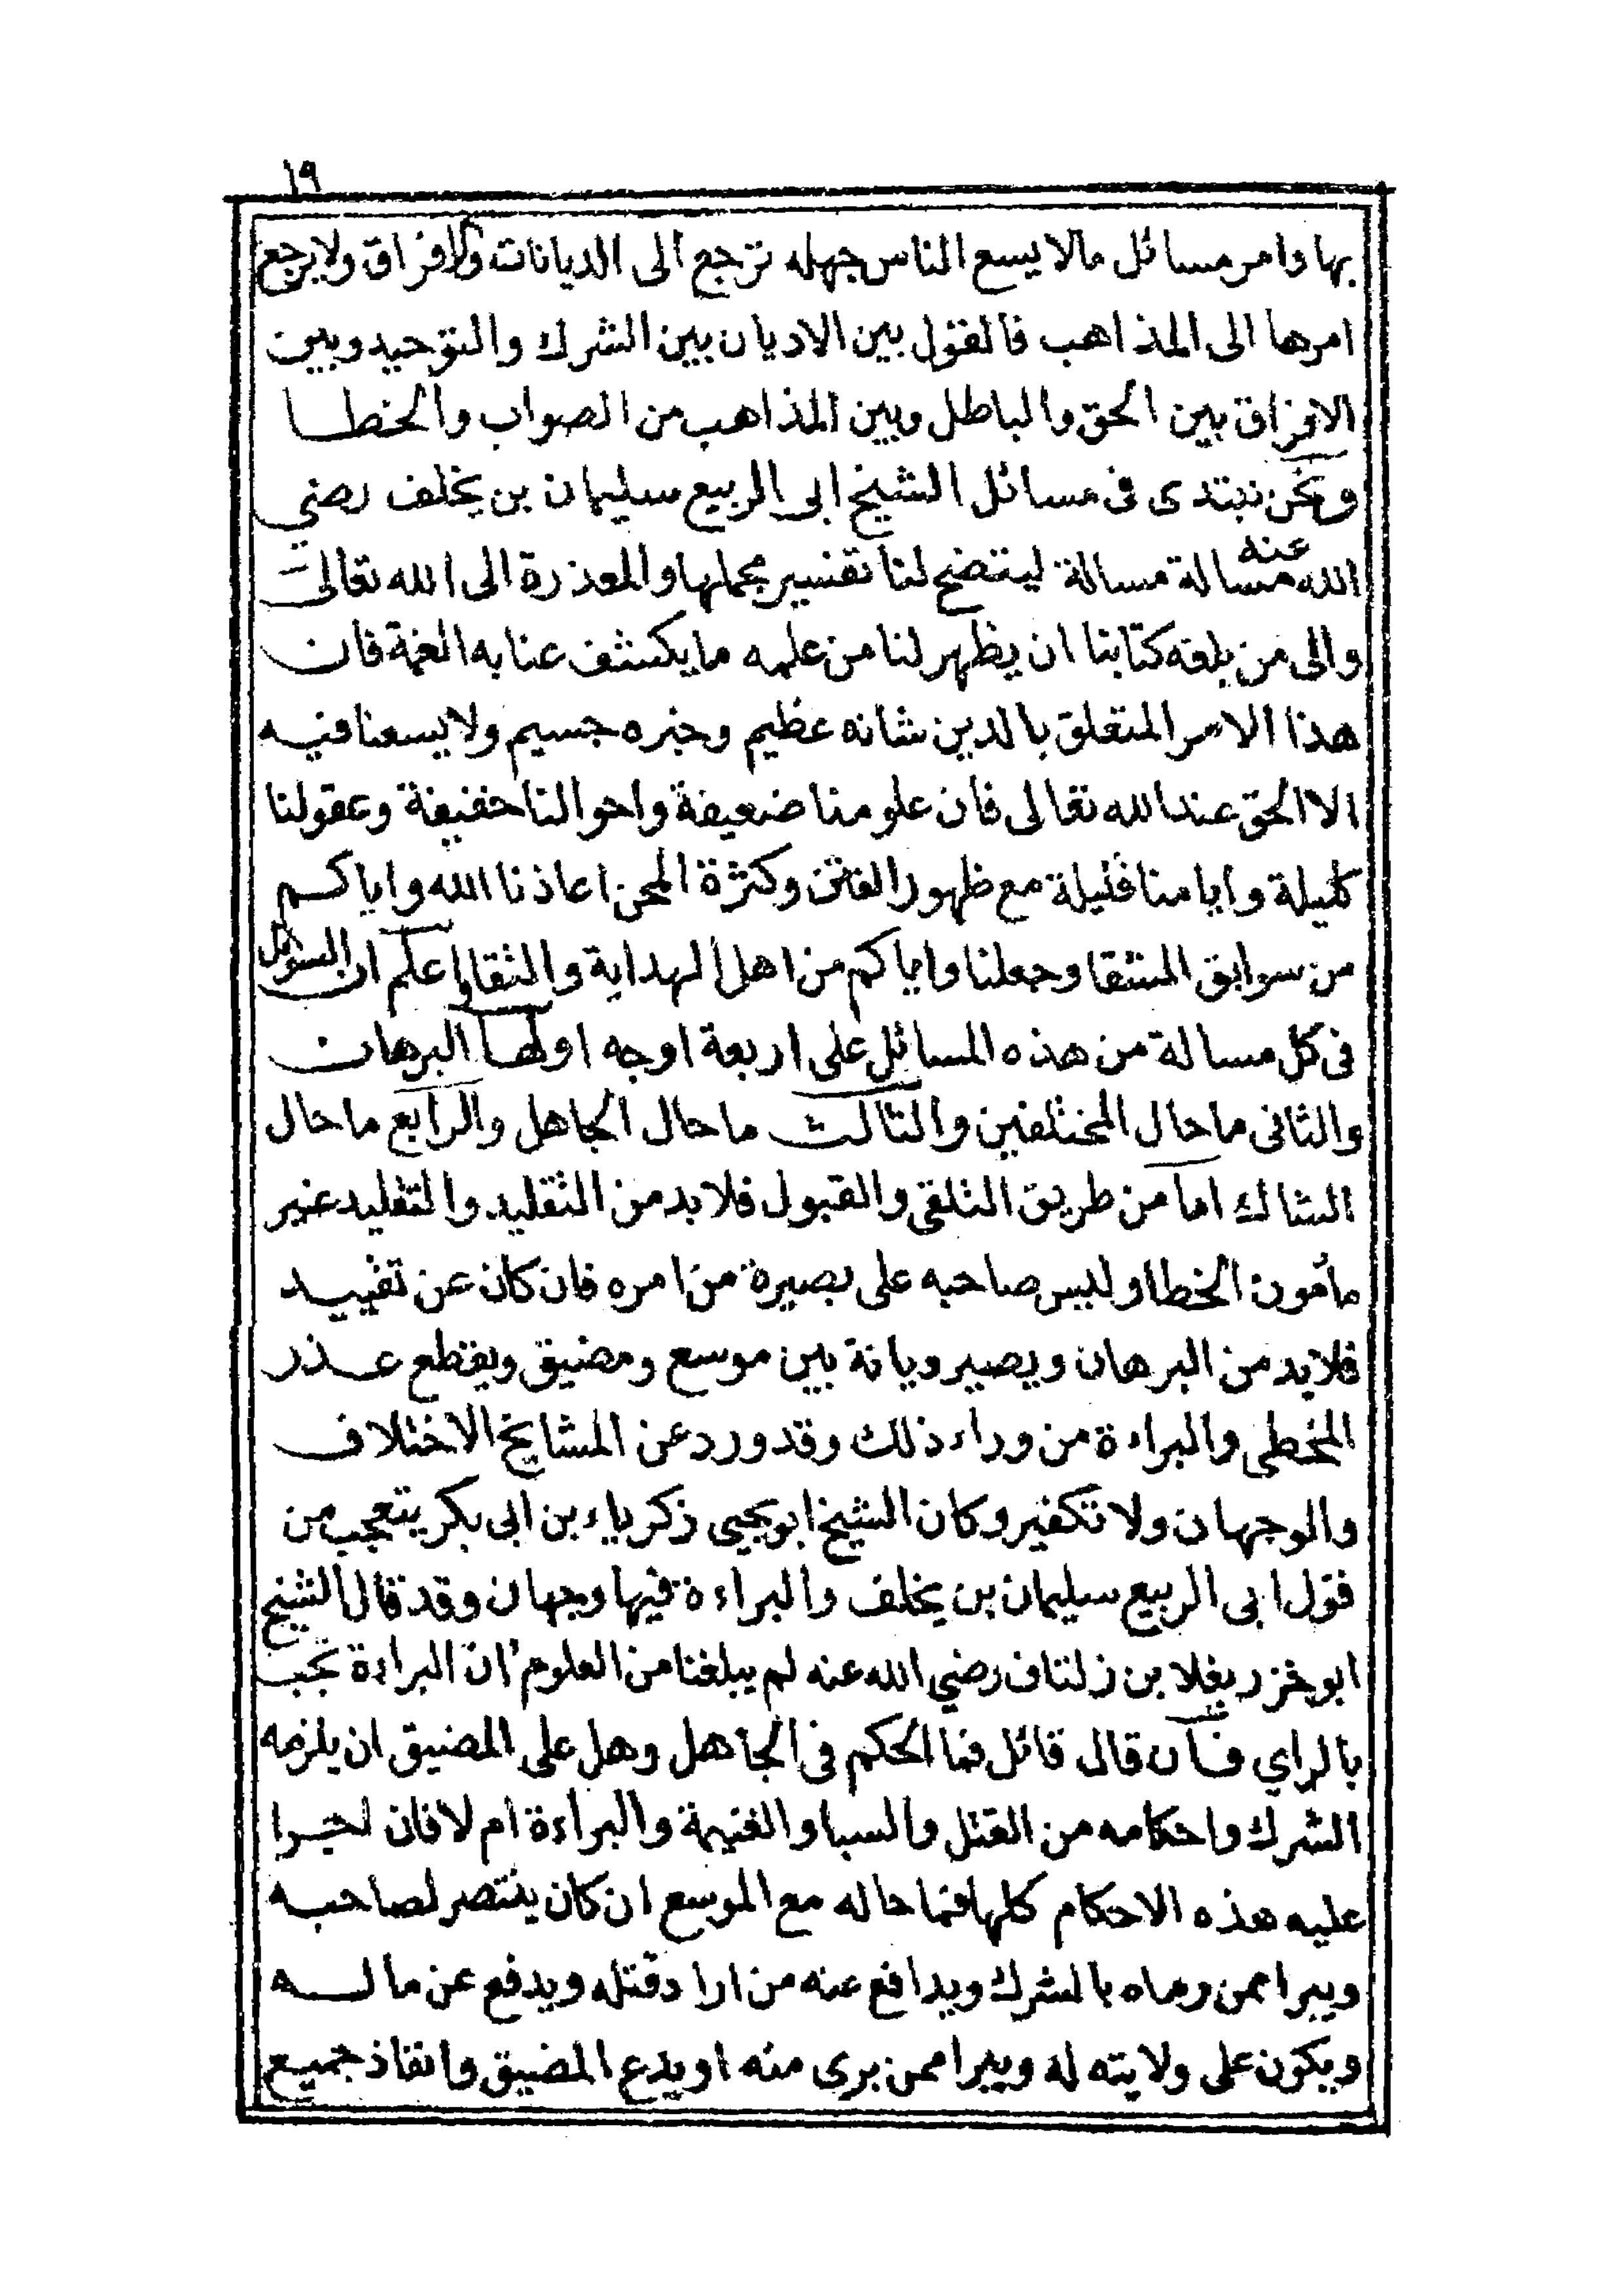 ١٩
بها وامر مسائل مالا يسع الناس جهله ترجع الى الديانات والافراق ولا يرجع
امرها الى المذاهب فالقول بين الاديان بين الشرك والتوحيد وبين
الافراق بين الحق والباطل وبين المذاهب من الصواب والخطا
ونحن نبتدى فى مسائل الشيخ ابى الربيع سليمان بن يخلف رضي
الله عنه مسالة مسالة ليتضح لنا تفسير مجملها والمعذرة الى الله تعالى
والى من بلغه كتابنا ان يظهر لنا من علمه ما يكشف عنا به الغمة فان
هذا الامر المتعلق بالدين شانه عظيم وخبره جسيم ولا يسعنا فيه
الا الحق عند الله تعالى فان علومنا ضعيفة واحوالنا خفيفة وعقولنا
كليلة وايامنا قليلة مع ظهور الفتن وكثرة المحن اعاذنا الله واياكم
من سوابق الشقا وجعلنا واياكم من اهل الهداية والتقا واعلم ان السؤال
فى كل مسالة من هذه المسائل على اربعة اوجه اولها البرهان
والثانى ما حال المختلفين والثالث ما حال الجاهل والرابع ما حال
الشاك اما من طريق التلقى والقبول فلا بد من التقليد والتقليد غير
مأمون الخطا وليس صاحبه على بصيرة من امره فان كان عن تقييد
فلا بد من البرهان ويصير ديانة بين موسع ومضيق ويقطع عذر
المخطى والبراءة من وراء ذلك وقد ورد عن المشايخ الاختلاف
والوجهان ولا تكفير وكان الشيخ ابو يحيى زكرياء بن ابى بكر يتعجب من
قول ابى الربيع سليمان بن يخلف والبراءة فيها وجهان وقد قال الشيخ
ابو خزر يغلا بن زلتاف رضي الله عنه لم يبلغنا من العلوم ان البراءة تجب
بالراي فان قال قائل فما الحكم فى الجاهل وهل على المضيق ان يلزمه
الشرك واحكامه من القتل والسبا والغنيمة والبراءة ام لا فان اجرا
عليه هذه الاحكام كلها فما حاله مع الموسع ان كان ينتصر لصاحبه
ويبرا ممن رماه بالشرك ويدافع عنه من اراد قتله ويدفع عن ماله
ويكون على ولايته له ويبرا ممن برى منه او يدع المضيق وانفاذ جميع